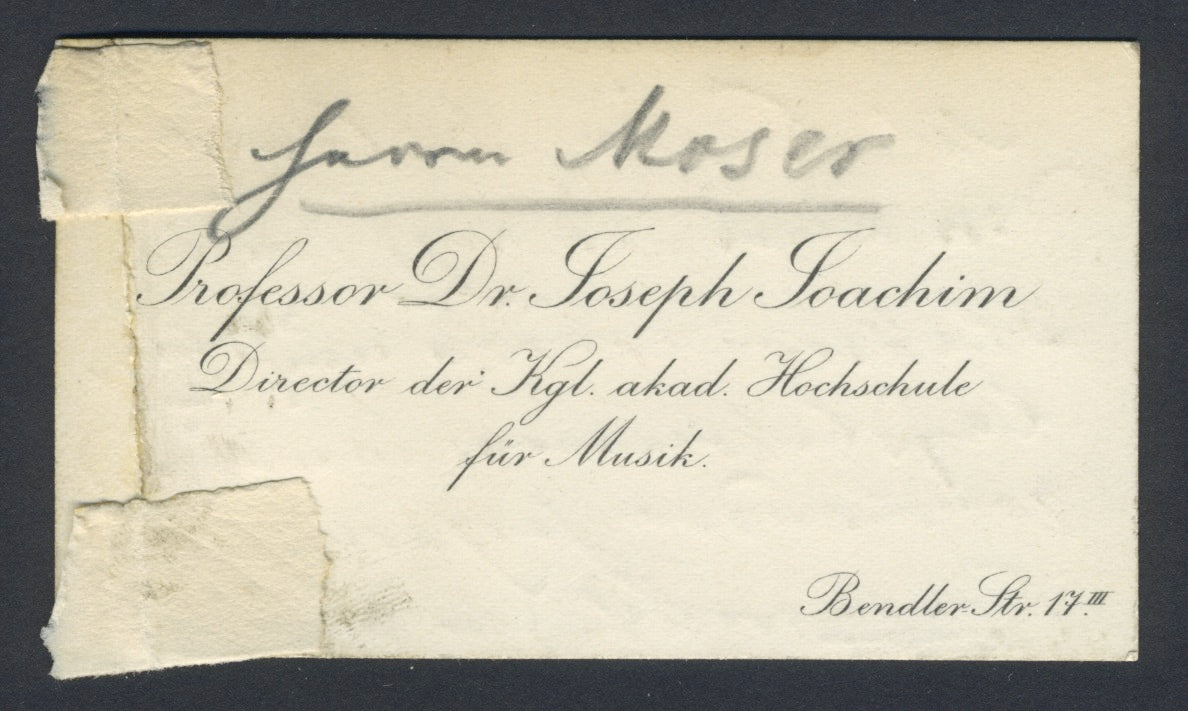 Herrn Moser
Professor Dr. Joseph Joachim
Director der Kgl. akad. Hochschule
für Musik.
Bendler-Str. 17.III